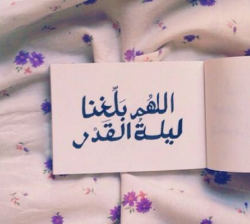 اللهُم بَلِّغنا
ليلةُ القَدْر